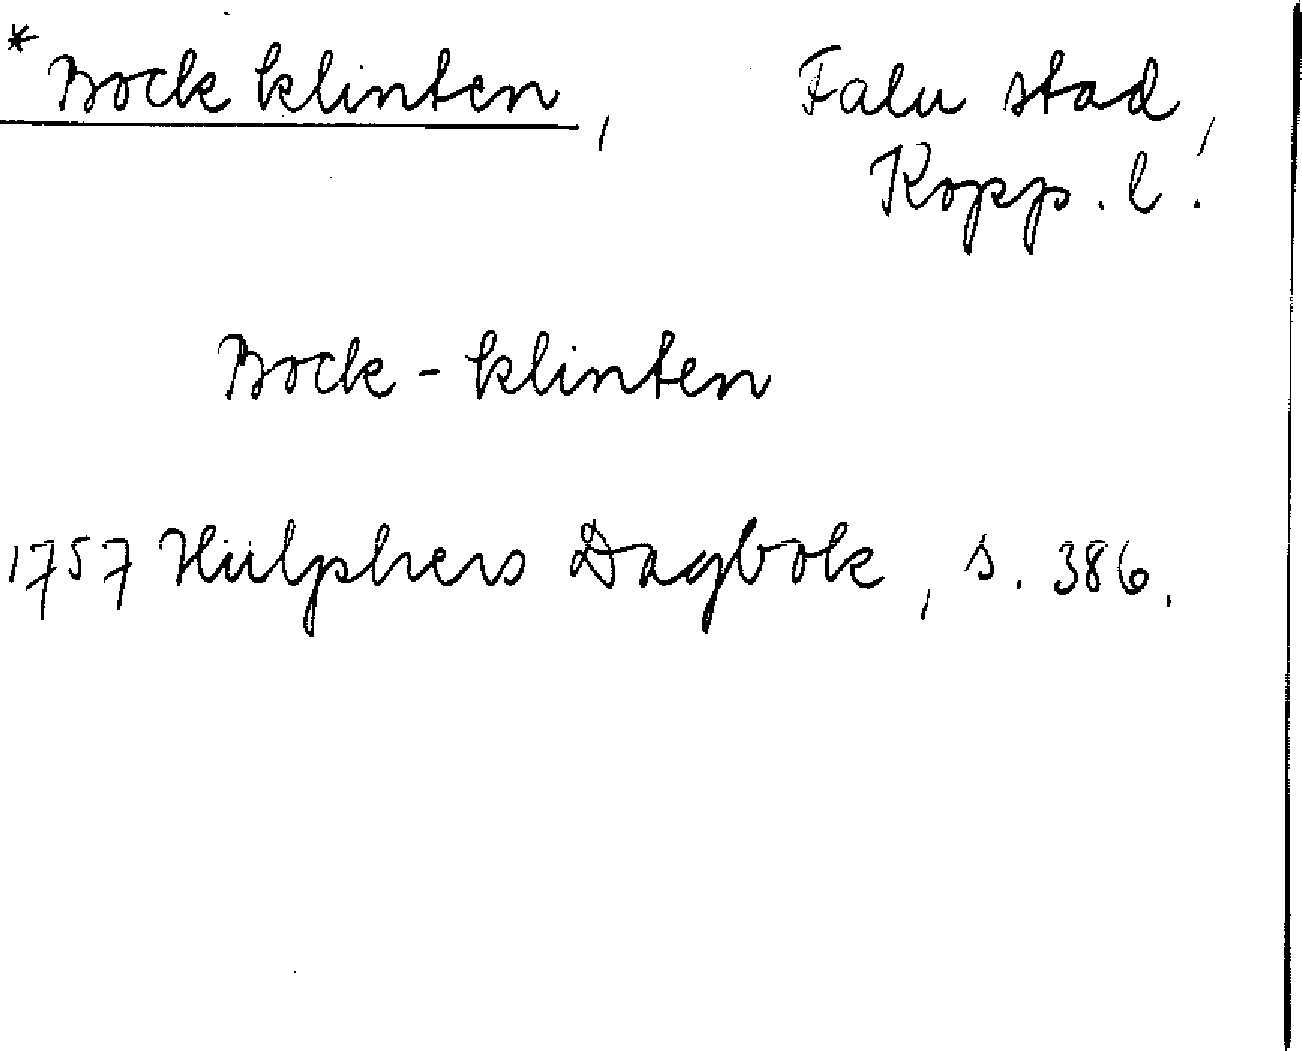 *Bockklinten, Falu stad,
Kopp. l.
Bock-klinten
1757 Hülphers Dagbok, s. 386.